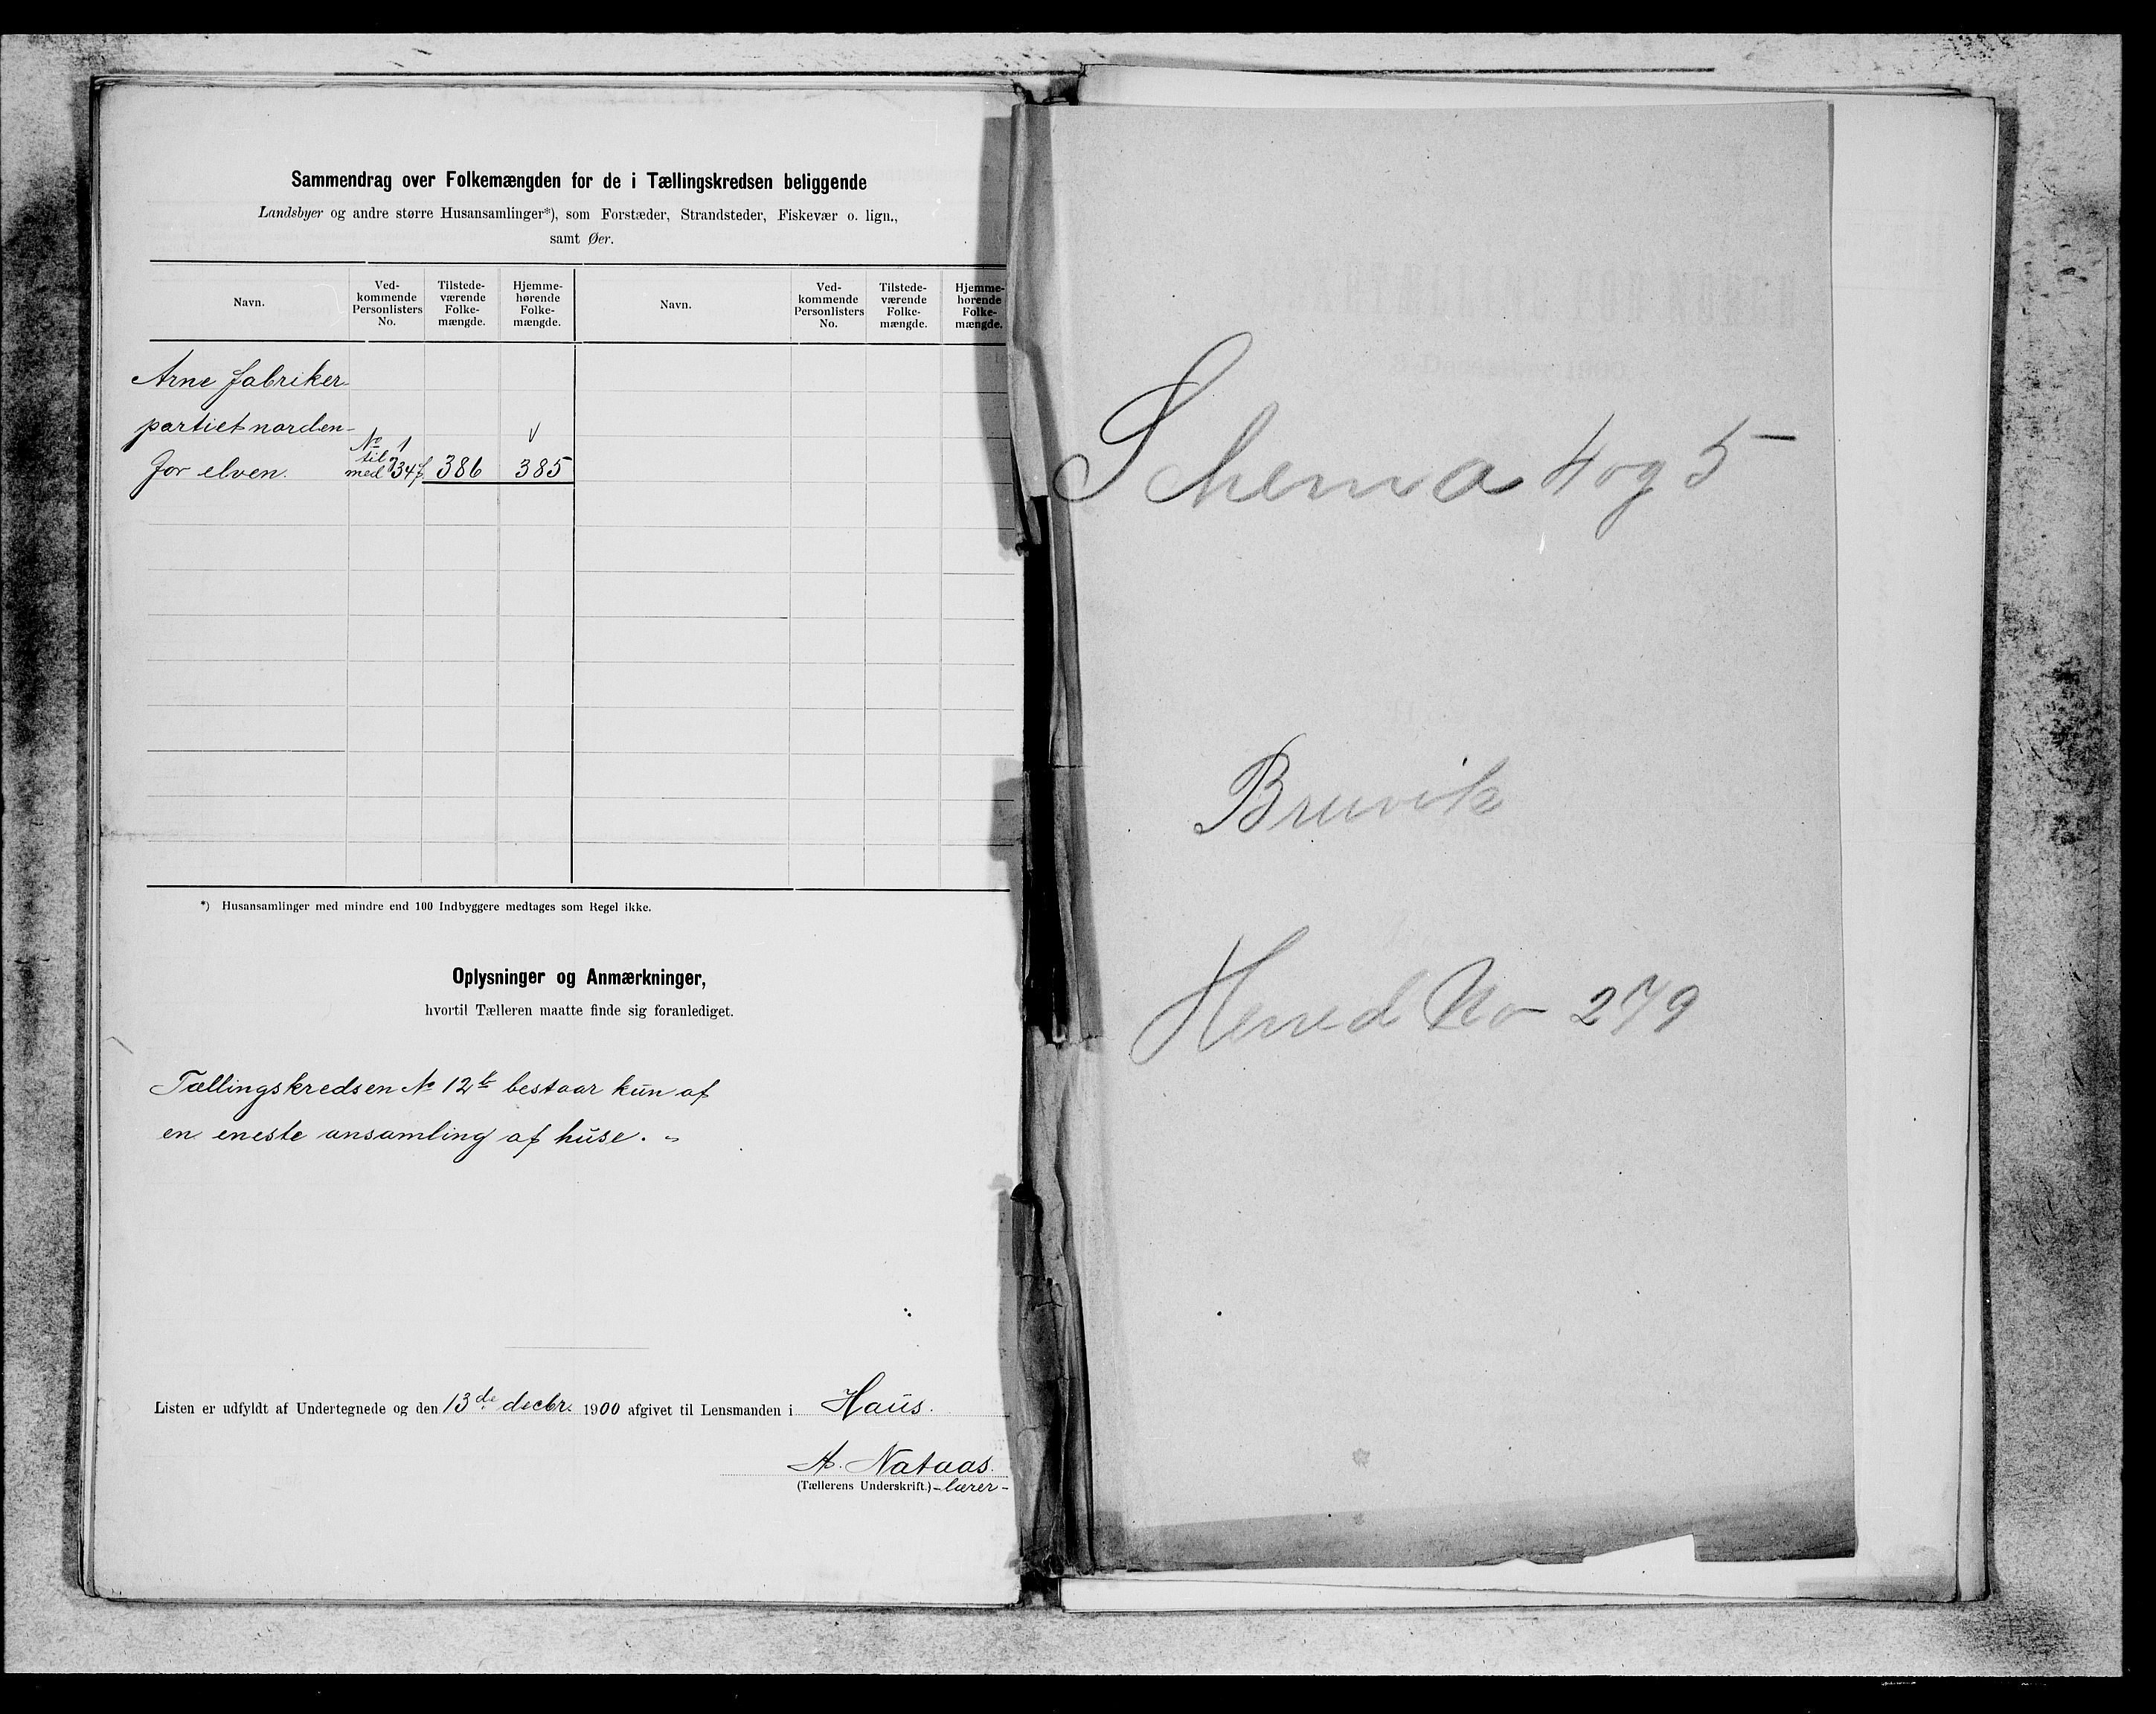 Sammendrag over Folkemængden for de i Tællingskredsen beliggende
Landsbyer og andre større Husansamlinger*), som Forstæder, Strandsteder, Fiskevær o. lign.,
samt Øer.
Navn.
Ved-
kommende
Personlisters
No.
Tilstede-
værende
Folke-
mængde.
Hjemme-
hørende
Folke-
mængde.
Navn.
Ved-
kommende
Personlisters
No.
Tilstede-
værende
Folke-
mængde.
Hjemme-
hørende
Folke-
mængde.
Arne fabriker
partiet norden-
for elven.
No 1
til
med 34
386
385
*) Husansamlinger med mindre end 100 Indbyggere medtages som Regel ikke.
Oplysninger og Anmærkninger,
hvortil Tælleren maatte finde sig foranlediget.
Tællingskredsen No 12 bestaar kun af
en eneste ansamling af huse.
Listen er udfyldt af Undertegnede og den 13de decbr. 1900 afgivet til Lensmanden i Haus.
A. Nataas.
(Tællerens Underskrift.) -lærer-
Schema 4 og 5
Bruvik
Herred No 279